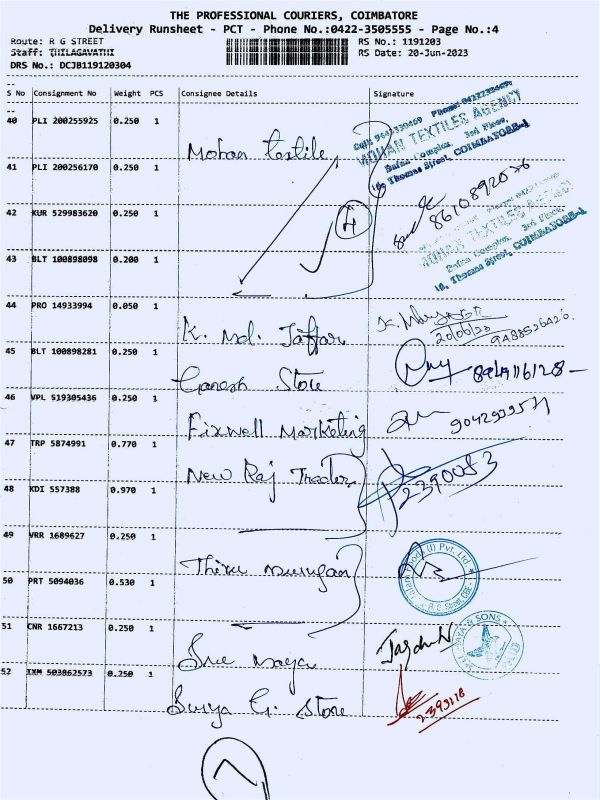 THE PROFESSIONAL COURIERS, COIMBATORE
Delivery Runsheet - PCT - Phone No.:0422-3505555 - Page No.:4
Route: R G STREET RS No.: 1191203
Staff: THILAGAVATHI RS Date: 20-Jun-2023
DRS No.: DCJB119120304
S No Consignment No Weight PCS Consignee Details Signature
40 PLI 200255925 0.250 1
Mohan textile
MOHAN TEXTILES AGENCY
Bafna Complex, 3rd Floor,
Thomas Street, COIMBATORE-1
41 PLI 200256170 0.250 1
8610892076
42 KUR 529983620 0.250 1
4
MOHAN TEXTILES AGENCY
Bafna Complex, 3rd Floor,
10, Thomas Street, COIMBATORE-1
43 BLT 100898098 0.200 1
44 PRO 14933994 0.050 1
K. Md. Jaffar
20/06/23
9488526426
45 BLT 100898281 0.250 1
Ganesh Store
46 VPL 519305436 0.250 1
Fixwell Marketing
47 TRP 5874991 0.770 1
New Raj Traders
2390053
48 KDI 557388 0.970 1
49 VRR 1689627 0.250 1
Thiru murugan
(I) Pvt. Ltd.
R.G. Street, CBE
50 PRT 5094036 0.530 1
51 CNR 1667213 0.250 1
Sree maya
& SONS
52 IXM 503862573 0.250 1
Surya G. Store